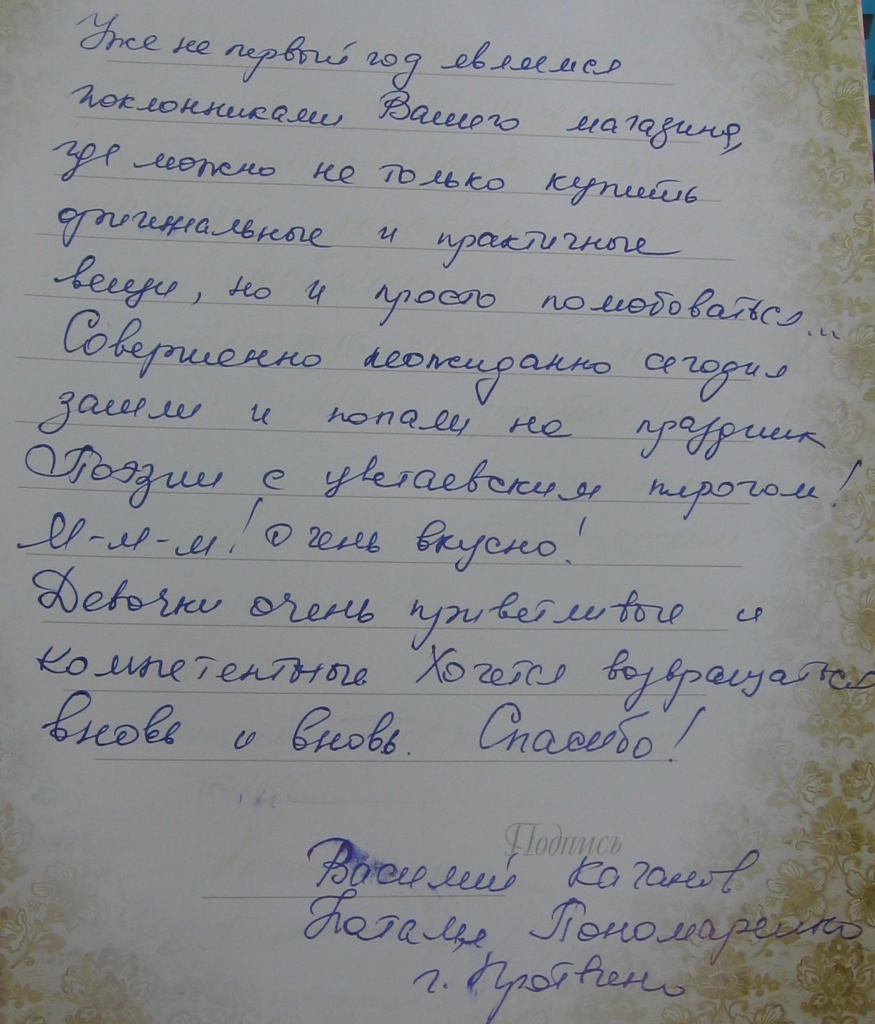 Уже не первый год являемся
поклонниками Вашего магазина,
где можно не только купить
оригинальные и практичные
вещи, но и просто полюбоваться...
Совершенно неожиданно сегодня
зашли и попали на праздник
Поэзии с цветаевским пирогом!
М-м-м! Очень вкусно!
Девочки очень приветливые и
компетентные Хочется возвращаться
вновь и вновь. Спасибо!
Подпись
Василий Каганов
Наталья Пономаренко
г. Протвино